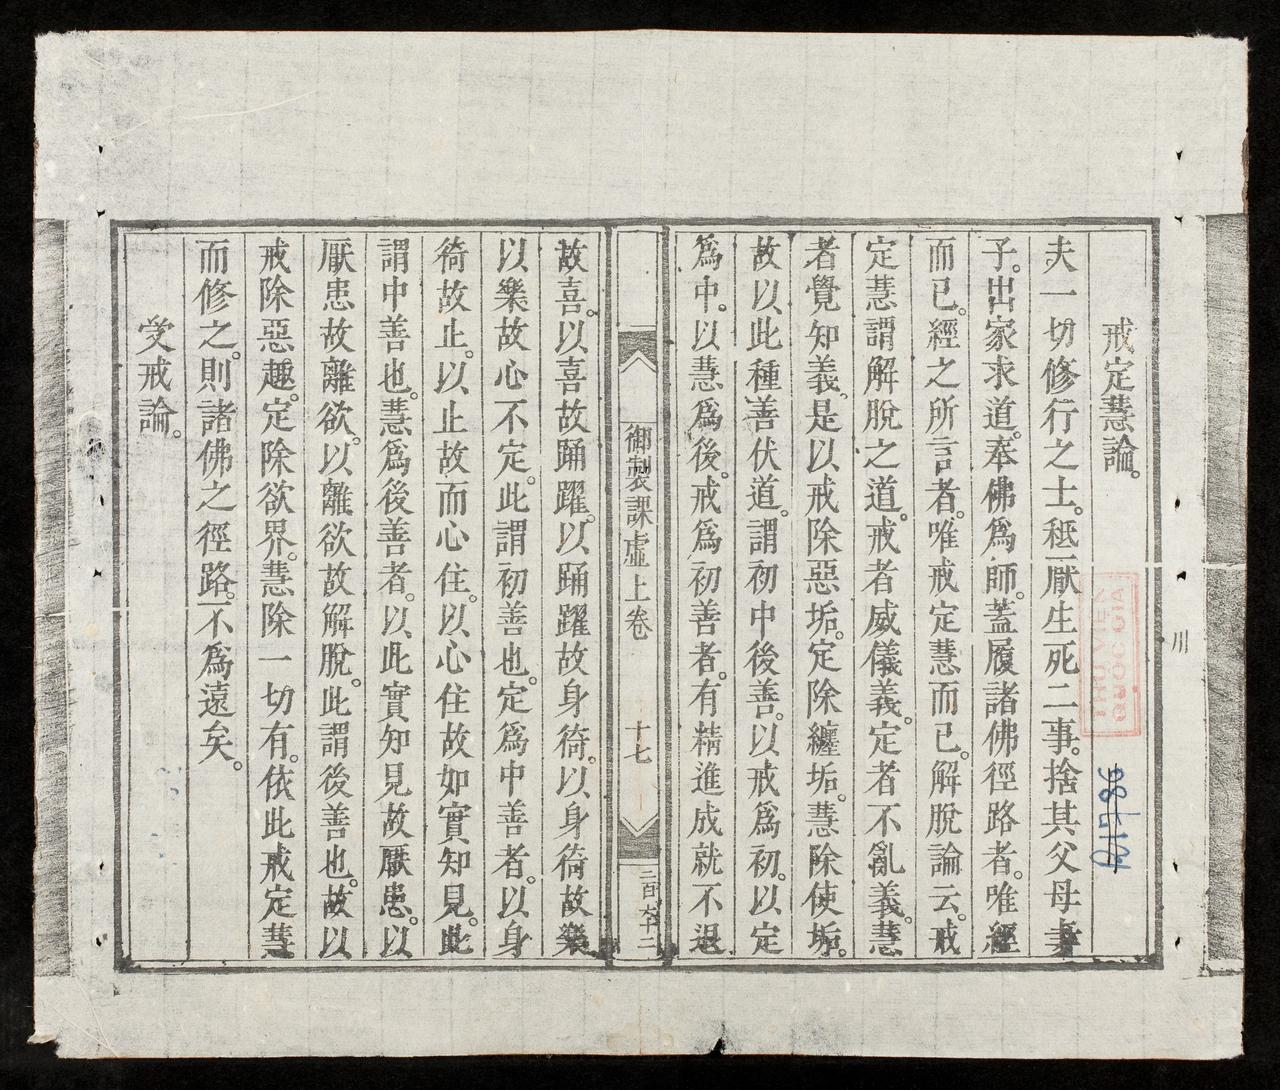 戒定慧論。
夫一切修行之士。秪厭生死二事。捨其父母妻
子。出家求道。奉佛爲師。蓋履諸佛徑路者。唯經
而已。經之所言者。唯戒定慧而已。解脫論云。戒
定慧謂解脫之道。戒者威儀義。定者不亂義。慧
者覺知義。是以戒除惡垢。定除纏垢。慧除使垢。
故以此種善伏道。謂初中後善。以戒爲初。以定
爲中。以慧爲後。戒爲初善者。有精進成就不退
御製課虛上卷 十七
故喜。以喜故踊躍。以踊躍故身猗。以身猗故樂
以樂故心不定。此謂初善也。定爲中善者。以身
猗故止。以止故而心住。以心住故如實知見。此
謂中善也。慧爲後善者。以此實知見故厭患。以
厭患故離欲。以離欲故解脫。此謂後善也。故以
戒除惡趣。定除欲界。慧除一切有。依此戒定慧
而修之。則諸佛之徑路。不爲遠矣。
受戒論。
THƯ VIỆN
QUỐC GIA
R1786